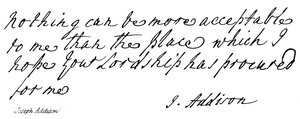 Nothing can be more acceptable
to me than the place which I
hope Your Lordship has procured
for me
J. Addison
Joseph Addison